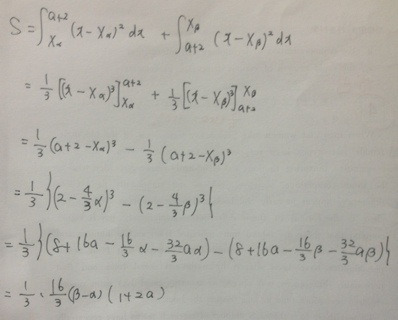 S = ∫_{xα}^{a+2} (x - xα)² dx + ∫_{a+2}^{xβ} (x - xβ)² dx
= 1/3 [(x - xα)³]_{xα}^{a+2} + 1/3 [(x - xβ)³]_{a+2}^{xβ}
= 1/3 (a+2 - xα)³ - 1/3 (a+2 - xβ)³
= 1/3 {(2 - 4/3 α)³ - (2 - 4/3 β)³}
= 1/3 {(8 + 16a - 16/3 α - 32/3 aα) - (8 + 16a - 16/3 β - 32/3 aβ)}
= 1/3 · 16/3 (β - α)(1 + 2a)